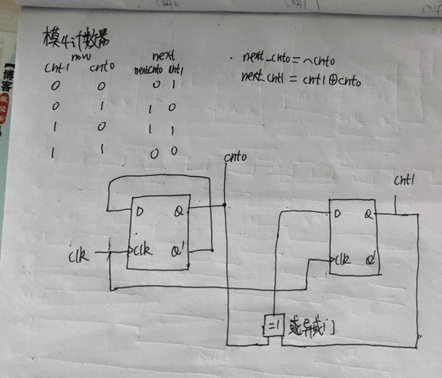 模4计数器
now next
cnt1 cnt0 nextcnt0 cnt1
0 0 0 1
0 1 1 0
1 0 1 1
1 1 0 0
next_cnt0 = ~cnt0
next_cnt1 = cnt1⊕cnt0
cnt0
cnt1
D Q
clk clk Q'
D Q
clk Q'
=1 或异或门
博客